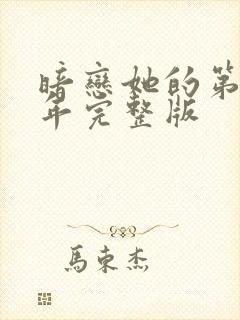 暗戀她的第
年完整版
馬東杰